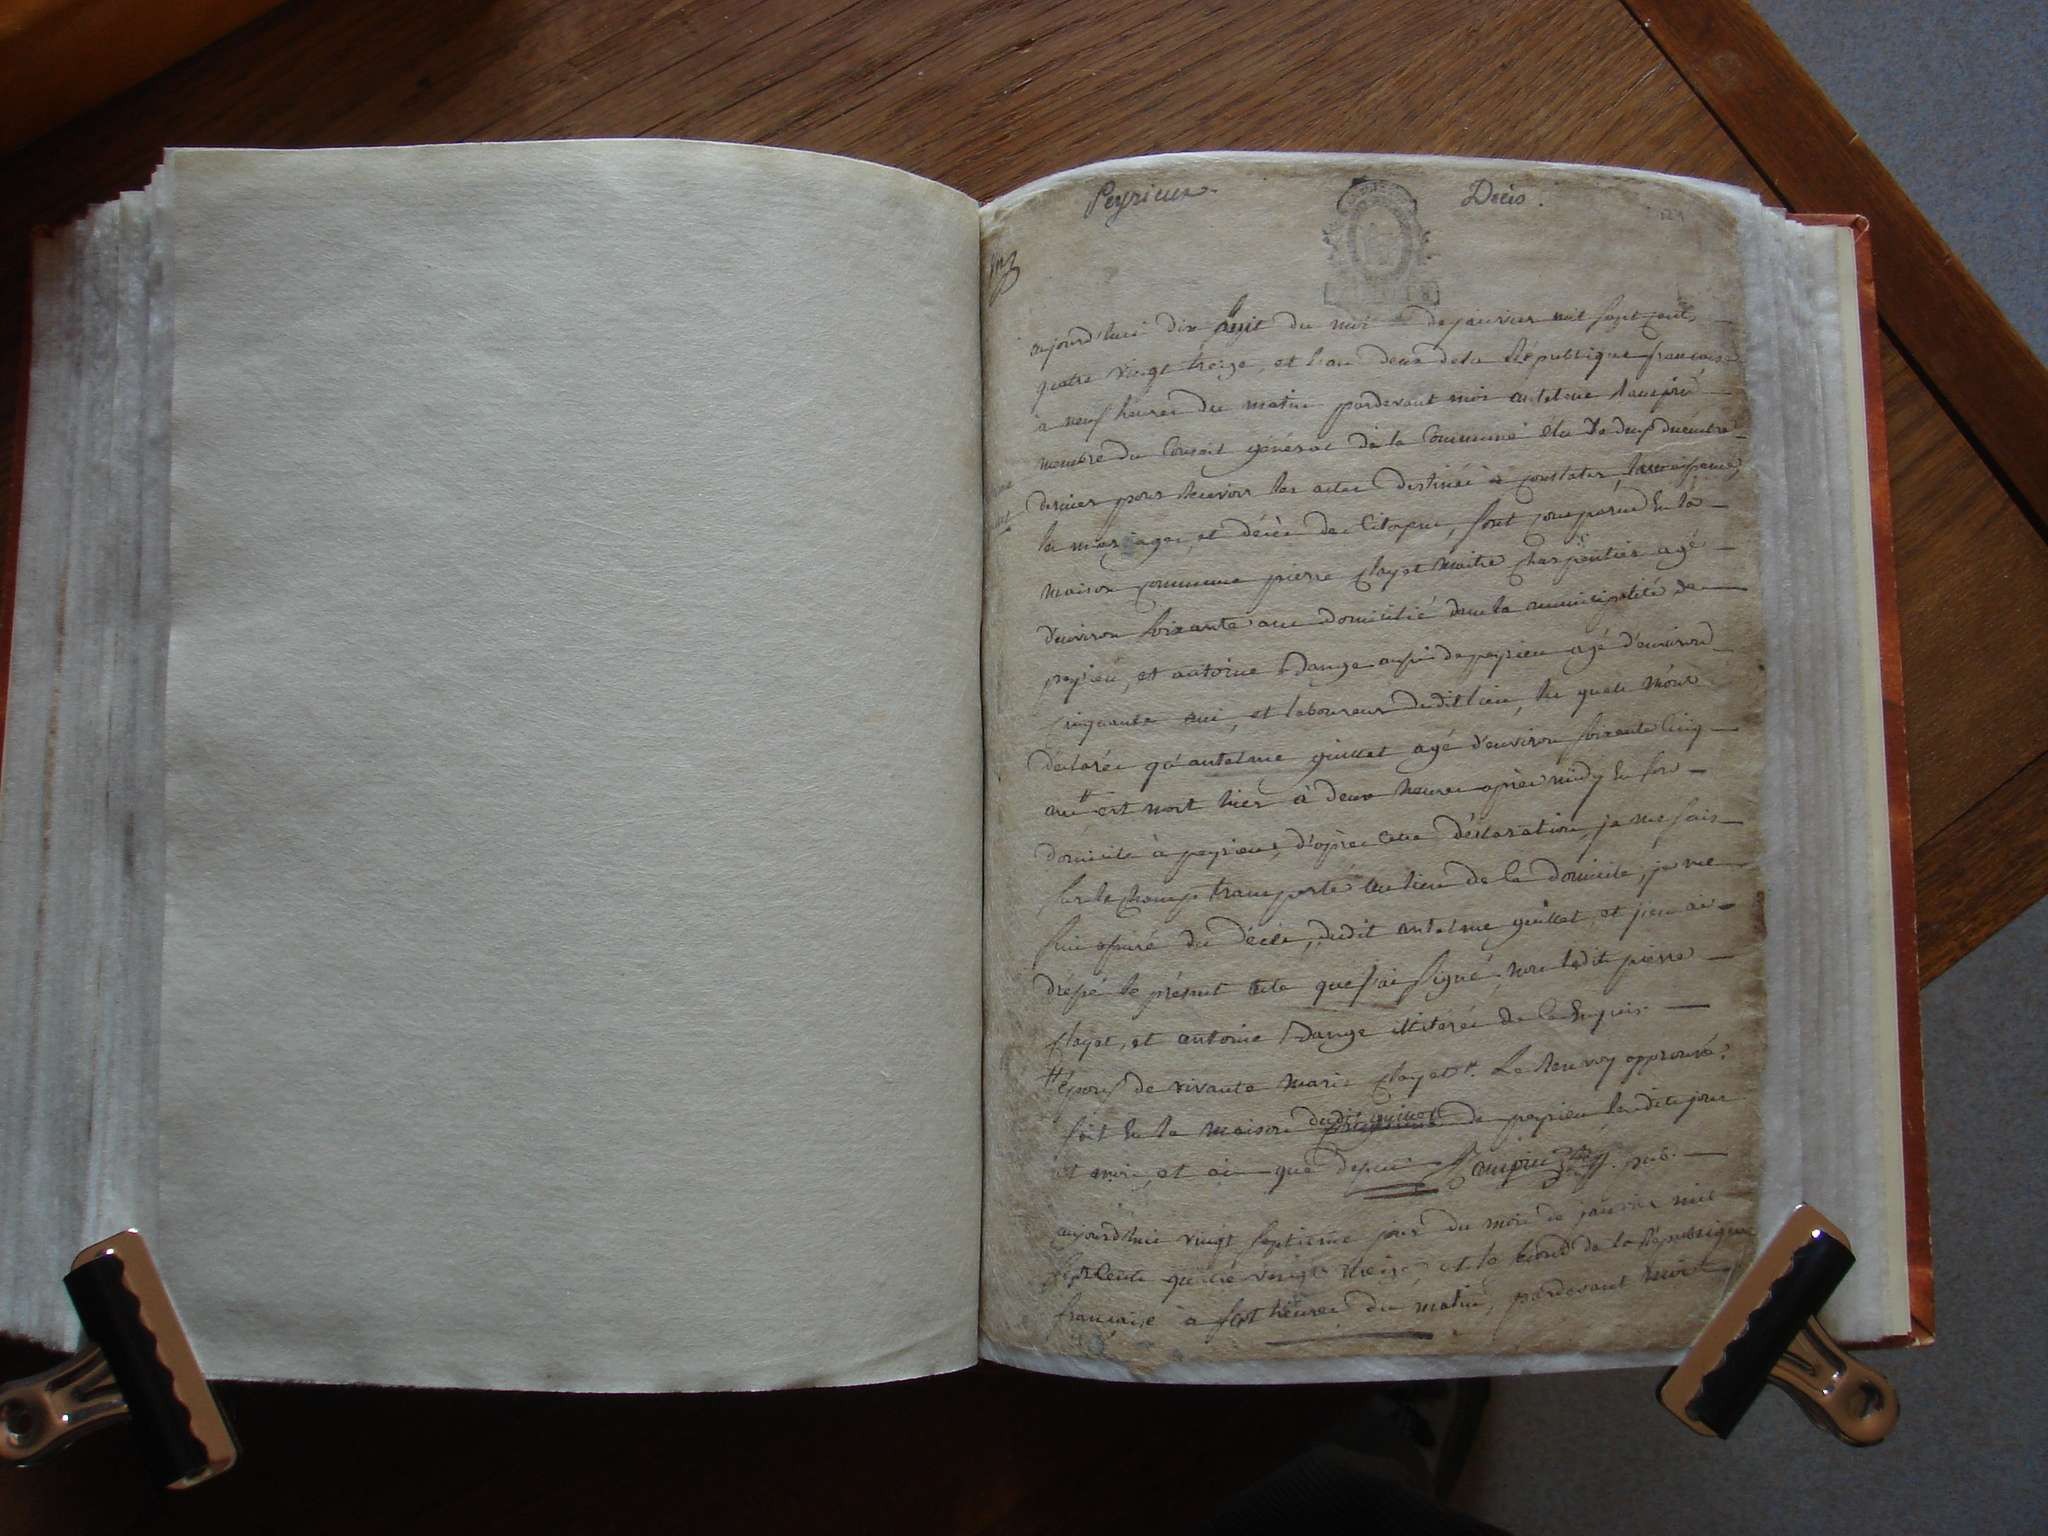 Peyrieux
Décès.
aujourd'huis dix huit du moi de janvier mil sept cent
quatre vingt treize, et l'an deux de la République francaise
à neuf heures du matin pardevant moi antelme
membre du Conseil général de la Commune élu le
dernier pour recevoir les actes destinés à constater les naissances
les mariages, et décès des Citoyens, sont comparus En la
maison commune pierre Clayet maitre charpentier agé
d'environ soixante ans domicilié dans la municipalité de
peyrieu, et antoine Dange aussi de peyrieu agé d'environ
cinquante ans, et laboureur dudit lieu, les quels m'ont
déclarés qu'antelme guillet agé d'environ soixante cinq
ans # est mort hier à deux heures après midy En son
domicile à peyrieu, d'après cette déclaration, je me suis
sur le champ transporté au lieu de ce domicile, je me
suis assuré du décès, dudit antelme guillet, et j'en ai
dressé le présent acte que j'ai signé, non lesdits pierre
Clayet, et antoine Dange illitérés de ce Enquis.
# époux de vivante marie Clayet #. Le Renvoy approuvé.
fait En la maison dudit guillet de peyrieu lesdits jour
et an que dessus pub.
aujourd'hui vingt septieme jour du mois de janvier mil
sept Cents quatre vingt treize, et le second de la République
francaise à sept heures du matin, pardevant moi